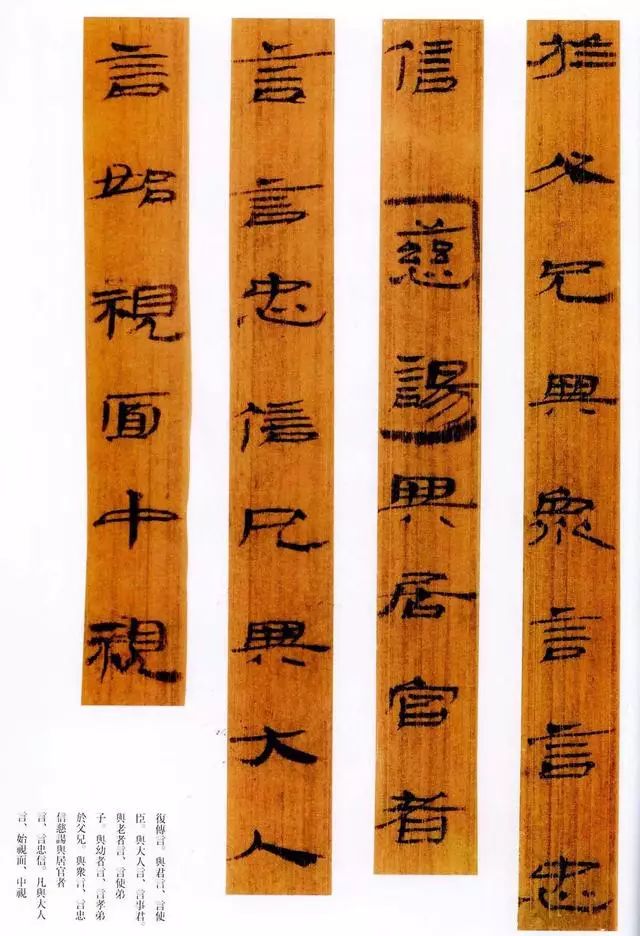 於父兄與衆言言忠
信慈諹與居官者
言言忠信凡與大人
言始視面中視
復傳言。與君言、言使
臣。與大人言、言事君。
與老者言、言使弟
子。與幼者言、言孝弟
於父兄。與衆言、言忠
信慈諹與居官者
言、言忠信。凡與大人
言、始視面、中視